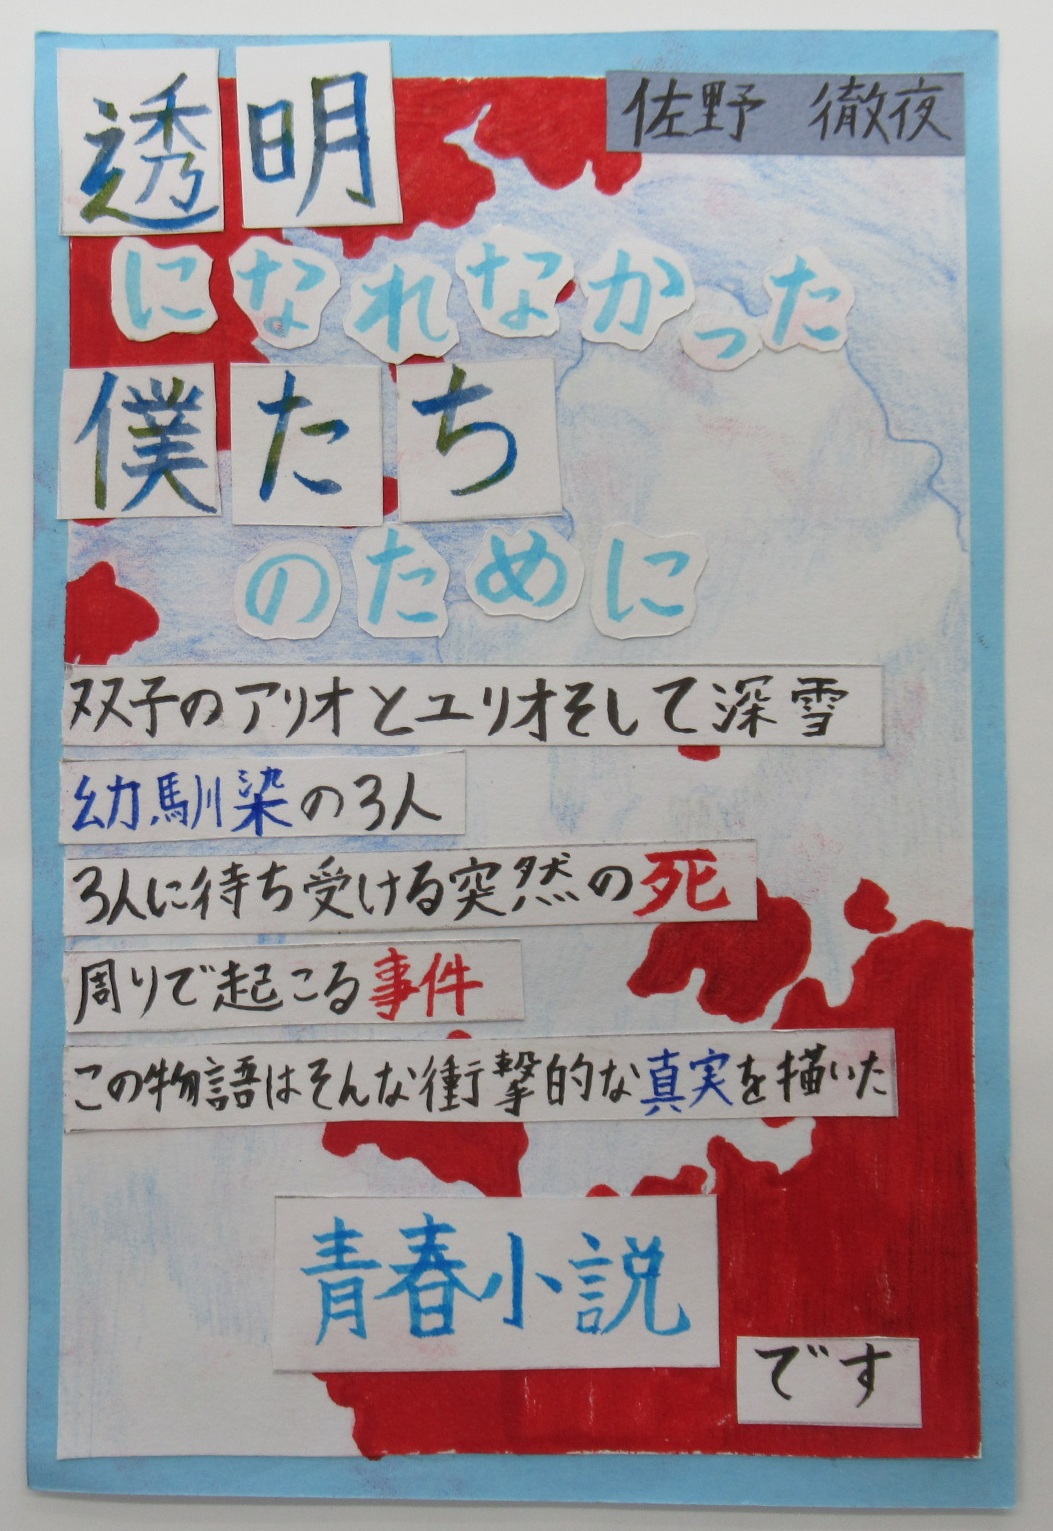 透明
になれなかった
僕たち
のために
佐野 徹夜
双子のアリオとユリオそして深雪
幼馴染の3人
3人に待ち受ける突然の死
周りで起こる事件
この物語はそんな衝撃的な真実を描いた
青春小説
です